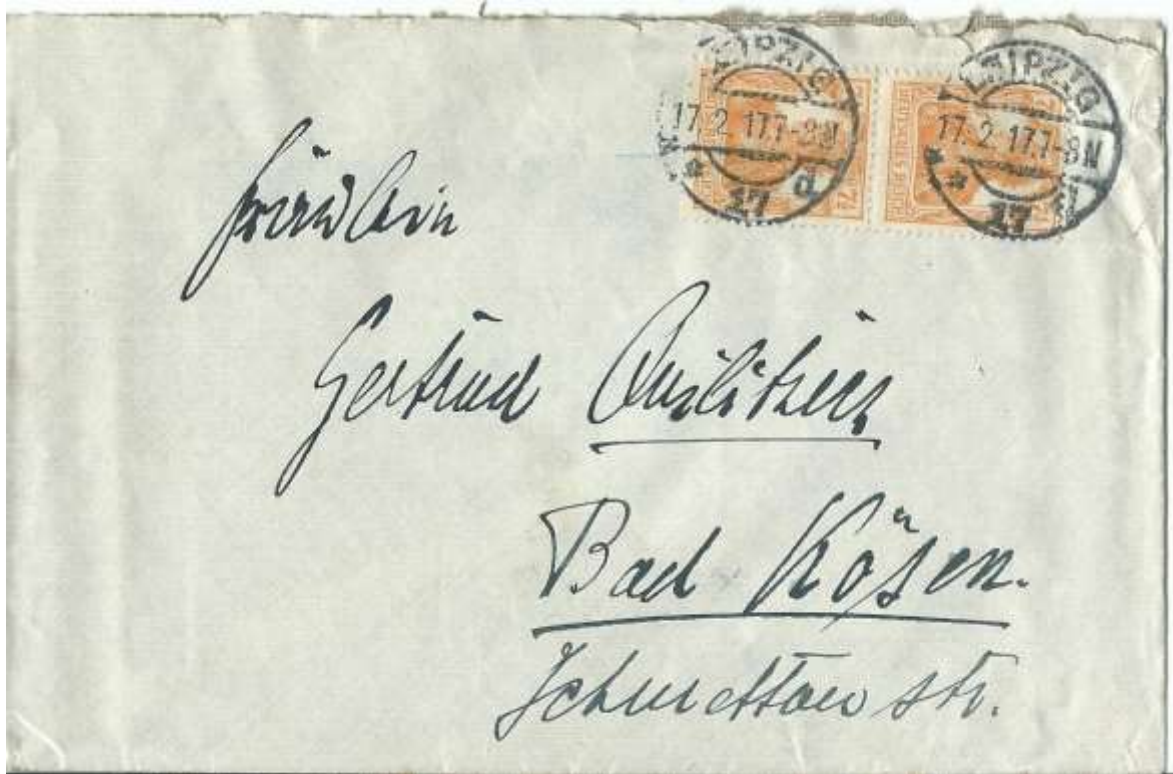 LEIPZIG
17.2.17.7-8N
* 17 d
LEIPZIG
17.2.17.7-8N
* 17
Fräulein
Gertrud
Bad Kösen.
Schmettow str.